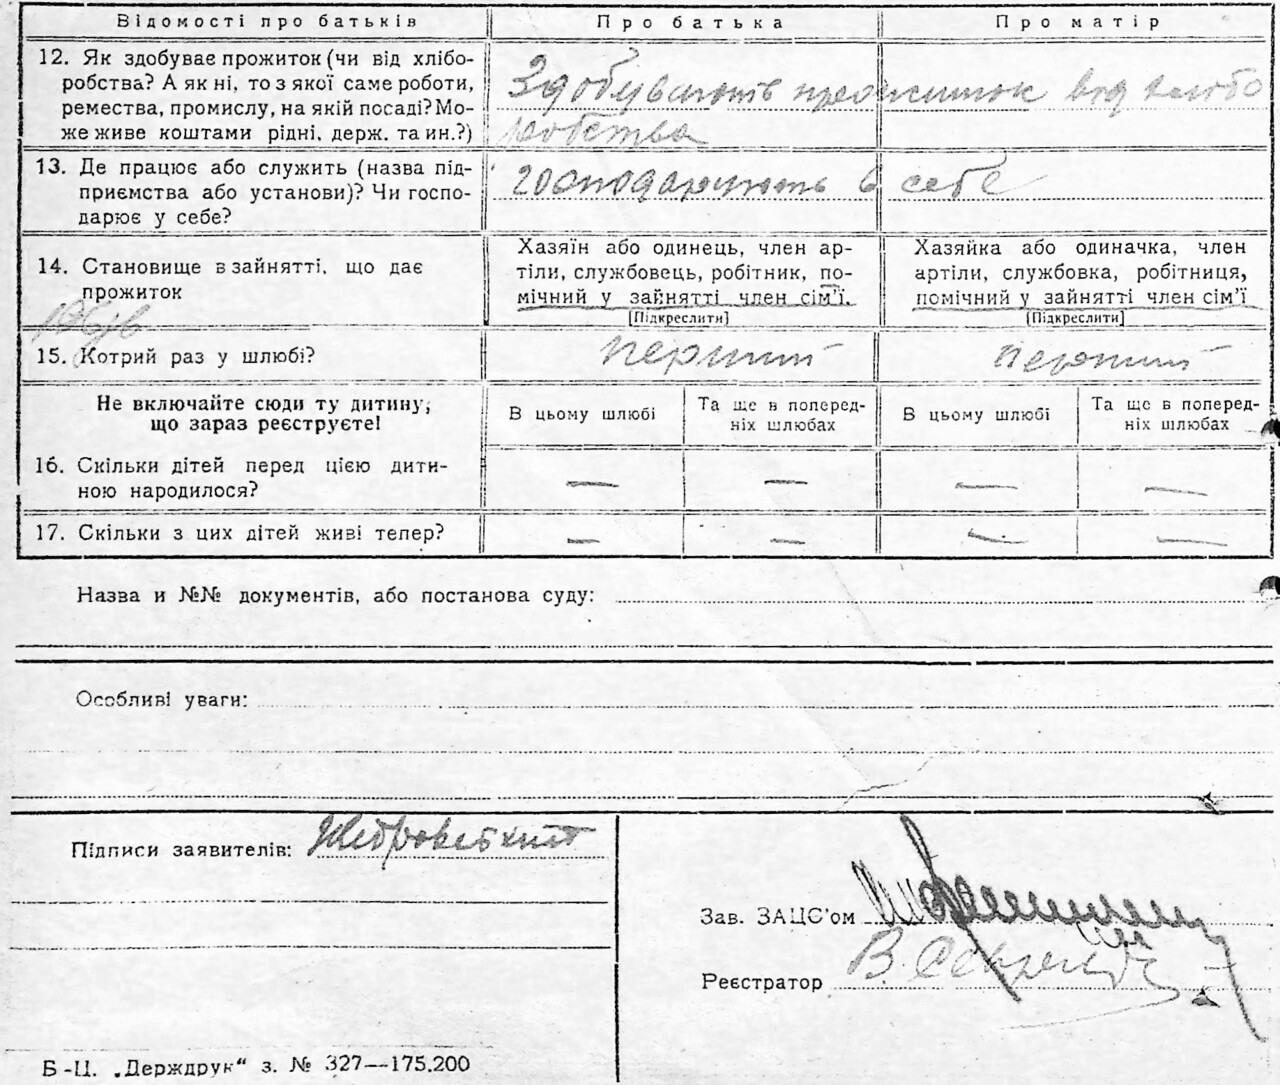 Відомості про батьків Про батька Про матір
12. Як здобуває прожиток (чи від хлібо-
робства? А як ні, то з якої саме роботи,
ремества, промислу, на якій посаді? Мо-
же живе коштами рідні, держ. та ин.?)
Здобувають прожиток від хлібо
робства
13. Де працює або служить (назва під-
приємства або установи)? Чи госпо-
дарює у себе?
господарюють в себе
14. Становище в зайнятті, що дає
прожиток
Хазяїн або одинець, член ар-
тіли, службовець, робітник, по-
мічний у зайнятті член сім'ї.
[Підкреслити]
Хазяйка або одиначка, член
артіли, службовка, робітниця,
помічний у зайнятті член сім'ї
[Підкреслити]
15. Котрий раз у шлюбі? перший перший
Не включайте сюди ту дитину,
що зараз реєструєте!
В цьому шлюбі
Та ще в поперед-
ніх шлюбах
В цьому шлюбі
Та ще в поперед-
ніх шлюбах
16. Скільки дітей перед цією дити-
ною народилося?
— — — —
17. Скільки з цих дітей живі тепер? — — — —
Назва и №№ документів, або постанова суду:
Особливі уваги:
Підписи заявителів:
Зав. ЗАЦС'ом
Реєстратор
Б-Ц. „Держдрук“ з. № 327—175.200